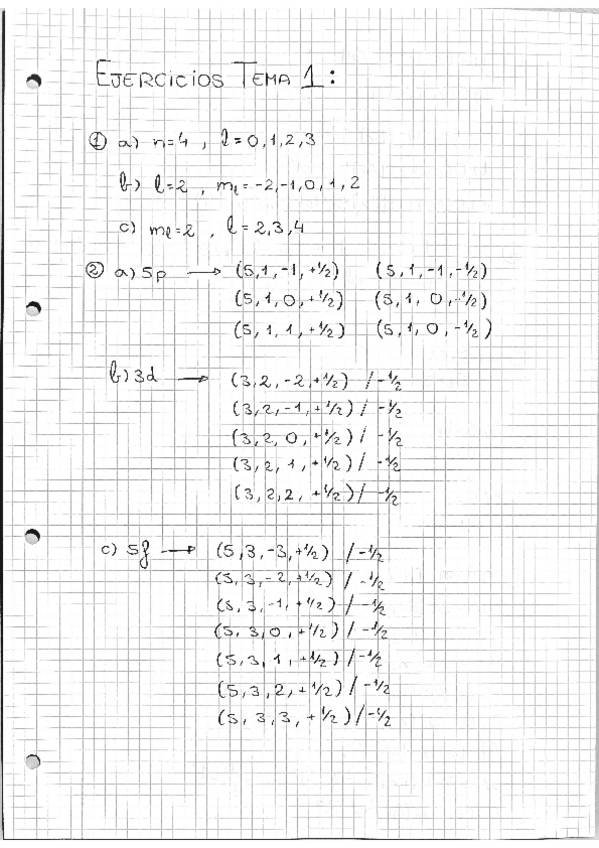 EJERCICIOS TEMA 1:
① a) n=4 , l=0,1,2,3
b) l=2 , ml=-2,-1,0,1,2
c) ml=2 , l=2,3,4
② a) 5p → (5,1,-1,+1/2) (5,1,-1,-1/2)
(5,1,0,+1/2) (5,1,0,-1/2)
(5,1,1,+1/2) (5,1,0,-1/2)
b) 3d → (3,2,-2,+1/2) / -1/2
(3,2,-1,+1/2) / -1/2
(3,2,0,+1/2) / -1/2
(3,2,1,+1/2) / -1/2
(3,2,2,+1/2) / -1/2
c) 5f → (5,3,-3,+1/2) / -1/2
(5,3,-2,+1/2) / -1/2
(5,3,-1,+1/2) / -1/2
(5,3,0,+1/2) / -1/2
(5,3,1,+1/2) / -1/2
(5,3,2,+1/2) / -1/2
(5,3,3,+1/2) / -1/2